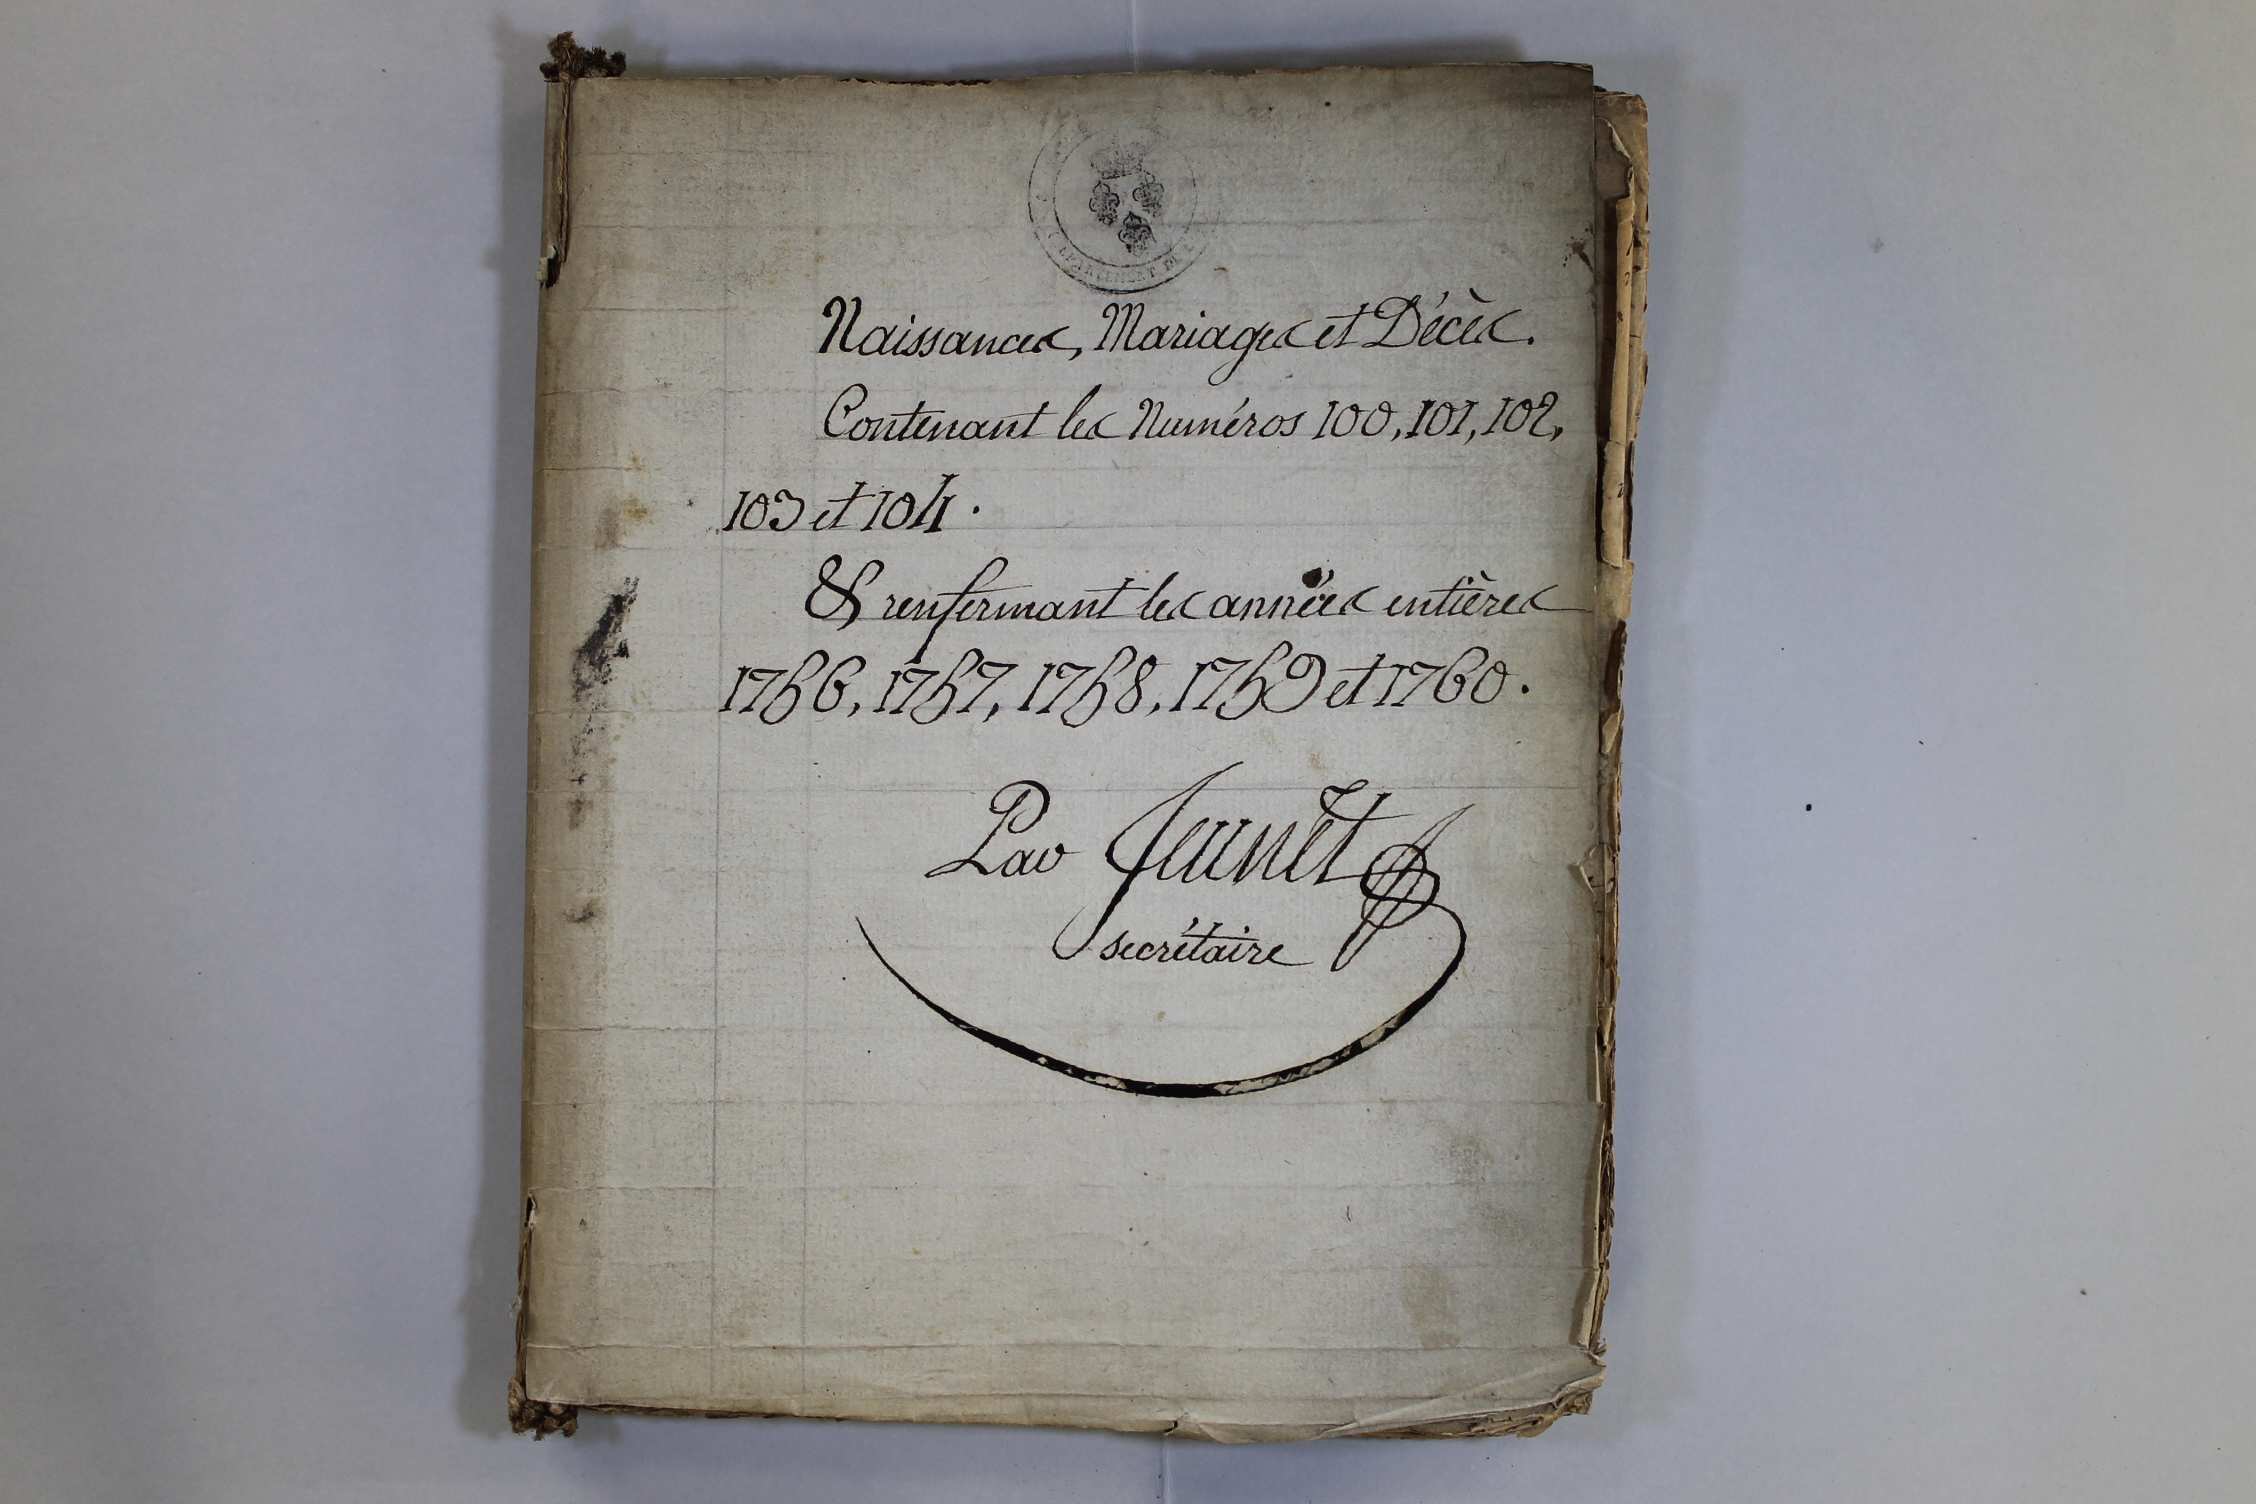 DÉPARTEMENT DE
Naissances, Mariages et Décès.
Contenant les Numéros 100, 101, 102,
103 et 104.
& renfermant les années entières
1756, 1757, 1758, 1759 et 1760.
Par Jeunet
secrétaire